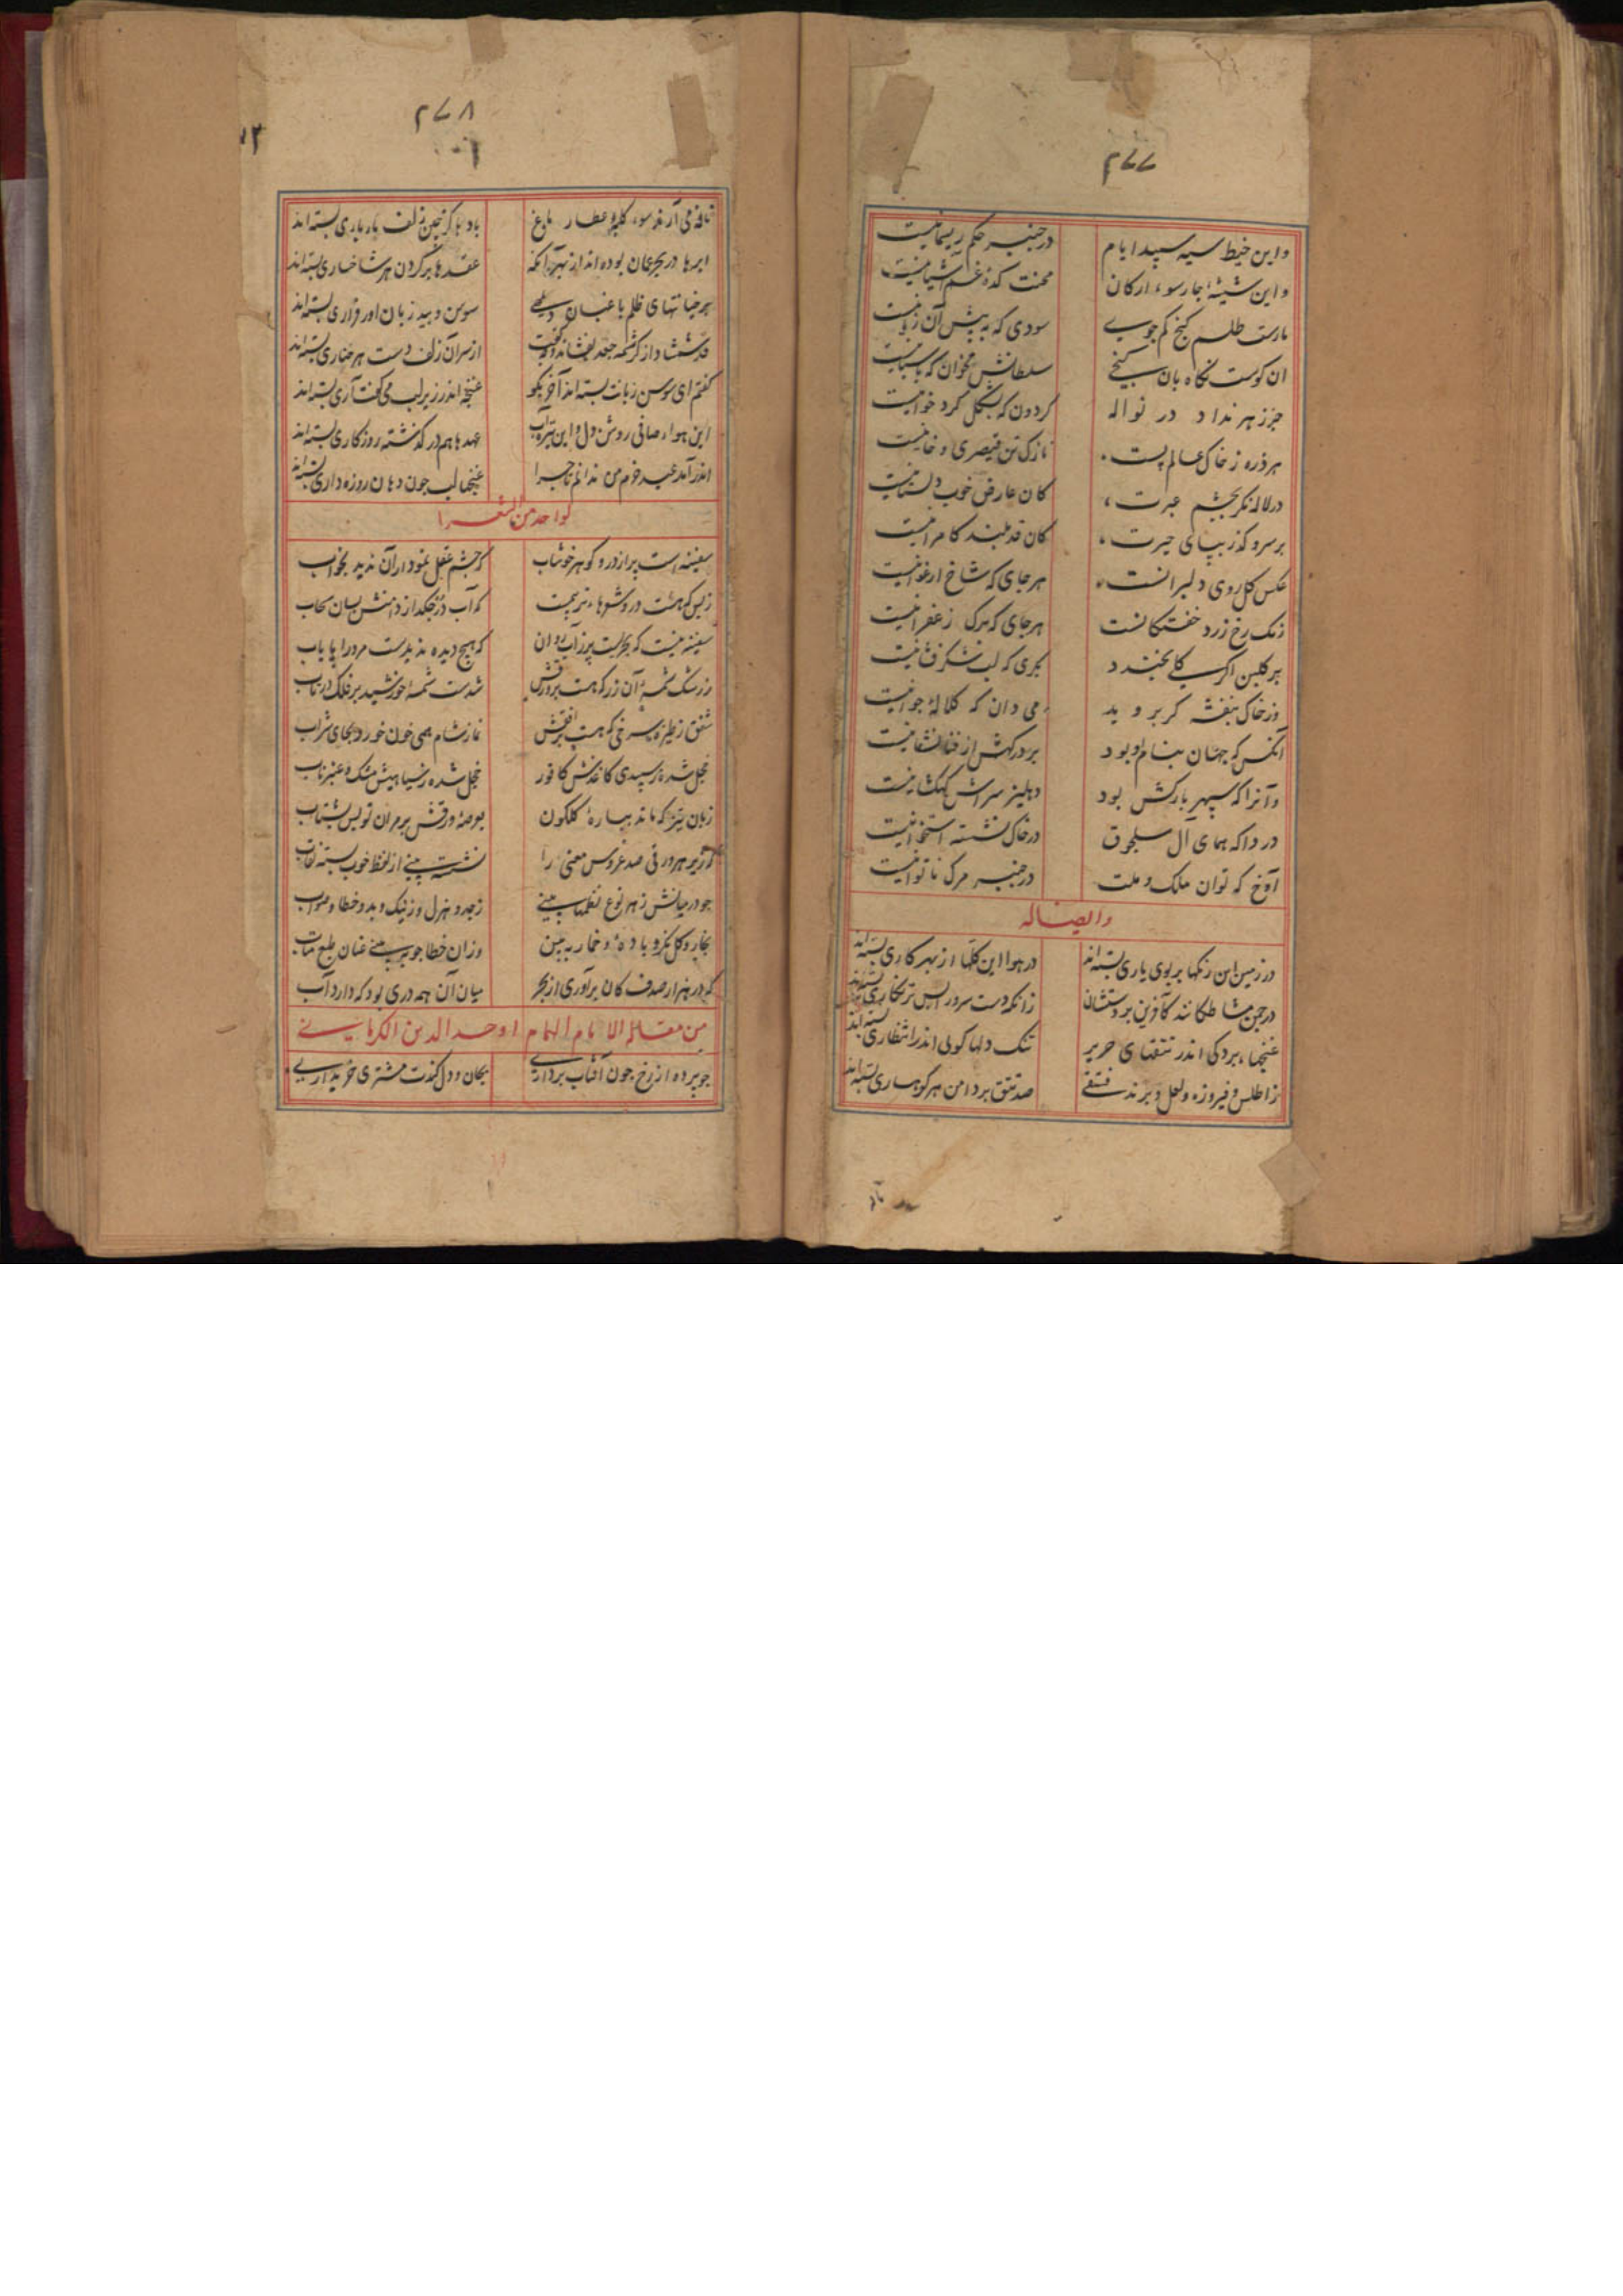 ۲۷۷
واین خیط سیه سپید ایام در چنبر حکم ریسمانیست
واین شیشهٔ چارسوء ارکان محنت کدهٔ غم آشیانیست
مارست طلسم کنج کم جوی سودی که به پیش آن زیانیست
ان کوست نگاه بان کنجی سلطانش مخوان که پاسبانیست
جز زهر نداد در نواله کردون که بشکل کرد خوانیست
هر ذره ز خاک عالم پست نازکی تن قیصری و خانیست
در لاله نکر بچشم عبرت کان عارض خوب دلستانیست
بر سرو کذر بپای حیرت کان قد بلند کامرانیست
عکس کل روی دلبرانست هر جای که شاخ ارغوانیست
رنک رخ زرد خفتکانست هر جای که برک زعفرانیست
بر کلبن اکر کلی بخندد بکری که لب شکرفشانیست
وز خاک بنفشه کر بروید می دان که کلالهٔ جوانیست
آنکس که جهان بنام او بود بر درکهش از فنا نشانیست
وآنرا که سپهر بارکش بود دهلیز سراش کهکشانیست
دردا که همای آل سلجوق در خاک نشسته استخوانیست
آوخ که توان ملک و ملت در چنبر مرک ناتوانیست
وایضا له
در زمین این رنکها بر بوی یاری بسته‌اند در هوا این کلها از بهر کاری بسته‌اند
در چمن مشاطکانند کآفرین بر دستشان زانکه دست سرو را بس تر نکاری بسته‌اند
غنچها بردکی اندر تتقهای حریر تنک دلها کویی اندر انتظاری بسته‌اند
ز اطلس و فیروزه و لعل و پرند صد تتق بر دامن هر کوهساری بسته‌اند
۲۷۸
نافه می آرند سوء کلبهٔ عطار باغ بادها کز چین زلف یار باری بسته‌اند
ابرها در بحر عمان بوده‌اند از بهر آنکه عقدها بر کردن هر شاخساری بسته‌اند
سوسن و بید زبان آور قراری بسته‌اند
از سر آن زلف دست هر چناری بسته‌اند
کفتم ای سوسن زبانت بسته‌اند آخر بکو غنچه اندر زیر لب می کفت آری بسته‌اند
این هواء صافی روشن دل و این تیره آب عهدها هم در کذشته روزکاری بسته‌اند
اندر آمد عید خرم من ندانم تا چرا غنچها لب چون دهان روزه داری بسته‌اند
لواحد من الشعرا
سفینه است پر از در و کوهر خوشاب که چشم عقل نمودار آن ندید بخواب
ز بس که هست درو شعرهاء تر که آب در چکد از دامنش بسان سحاب
سفینه نیست که بحریست پر ز آب روان که هیچ دیده ندیدست مر ورا پایاب
ز رشک شمسهٔ آن زر که هست بر ورقش شدست شمسهٔ خورشید بر فلک در تاب
شفق ز طیره سرخی که هست بر نماز شام همی خون خورد بجای شراب
خجل شده ز سپیدی کاغذش کافور خجل شده ز سیاهیش مشک و عنبر ناب
که زیر هر ورقی صد عروس معنی را نشسته بینی از لفظ خوب بسته نقاب
چو در میانش ز هر نوع نظمها بینی ز جد و هزل و ز نیک و بد و خطا و صواب
بخار و کل نکر و باده و خمار ببین وزان خطا چو ببینی عنان طبع متاب
که در هزار صدف کان برآوری از بحر میان آن همه دری بود که دارد آب
من مقالة الامام الهمام اوحد الدین الکرمانی
چو پرده از رخ چون آفتاب برداری بجان و دل کندت مشتری خریداری